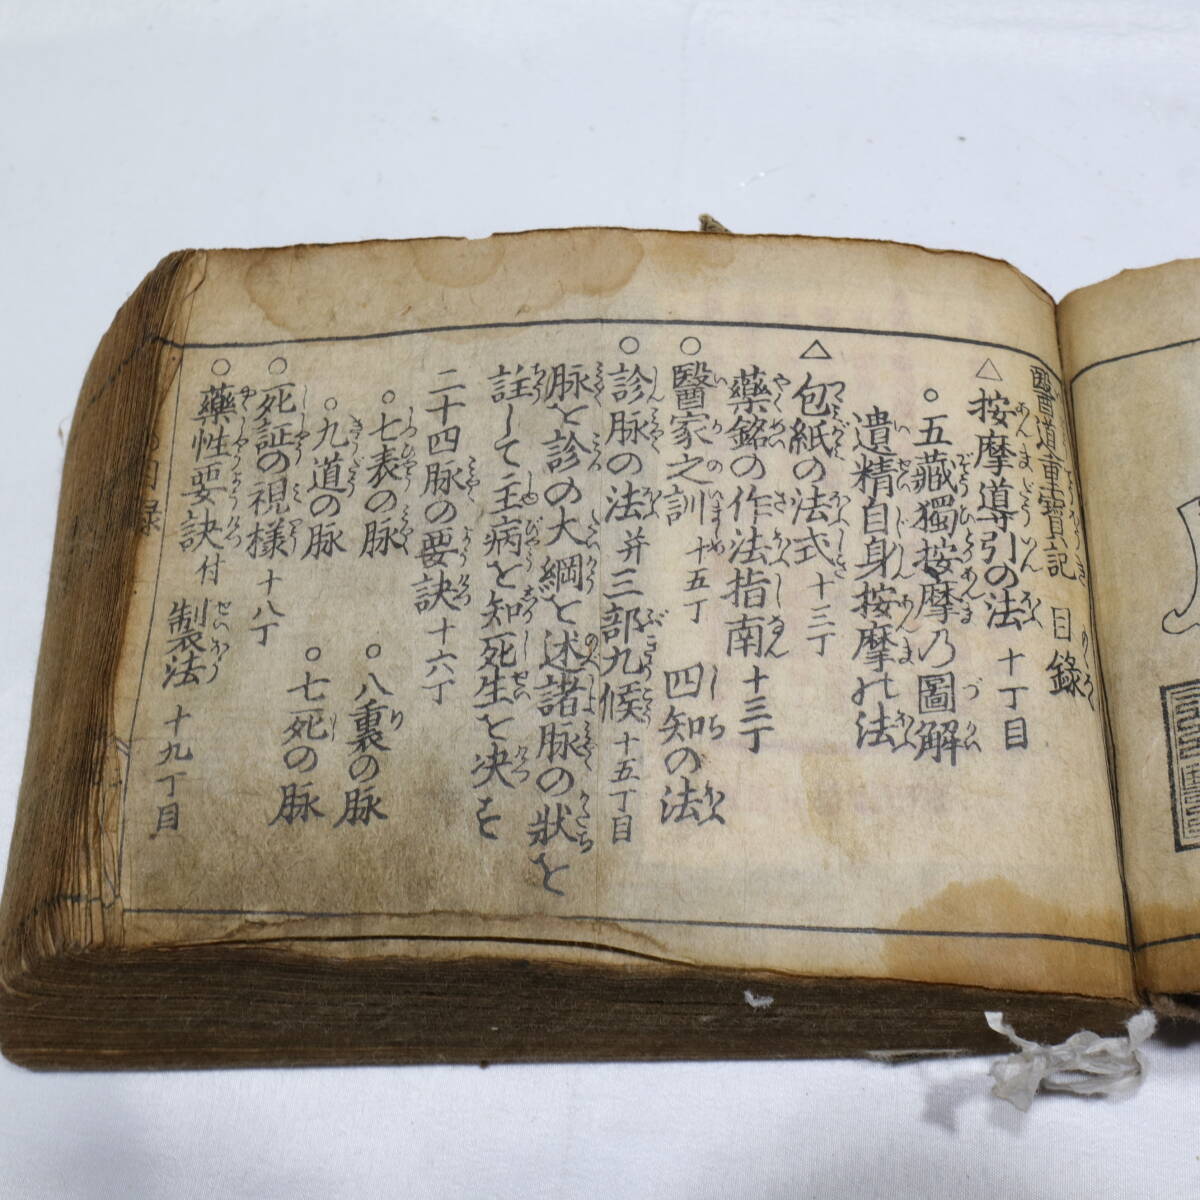 醫道重寶記 目錄
△按摩導引の法 十丁目
○五藏獨按摩乃圖解
遺精自身按摩の法
△包紙の法式 十三丁
藥銘の作法指南 十三丁
○醫家之訓 十五丁 四知の法
○診脉の法并三部九候 十五丁目
脉を診の大綱を述諸脉の狀を
註して主病を知死生を决す
二十四脉の要訣 十六丁
○七表の脉 ○八裏の脉
○九道の脉 ○七死の脉
○死証の視様 十八丁
○藥性要訣 付 製法 十九丁目